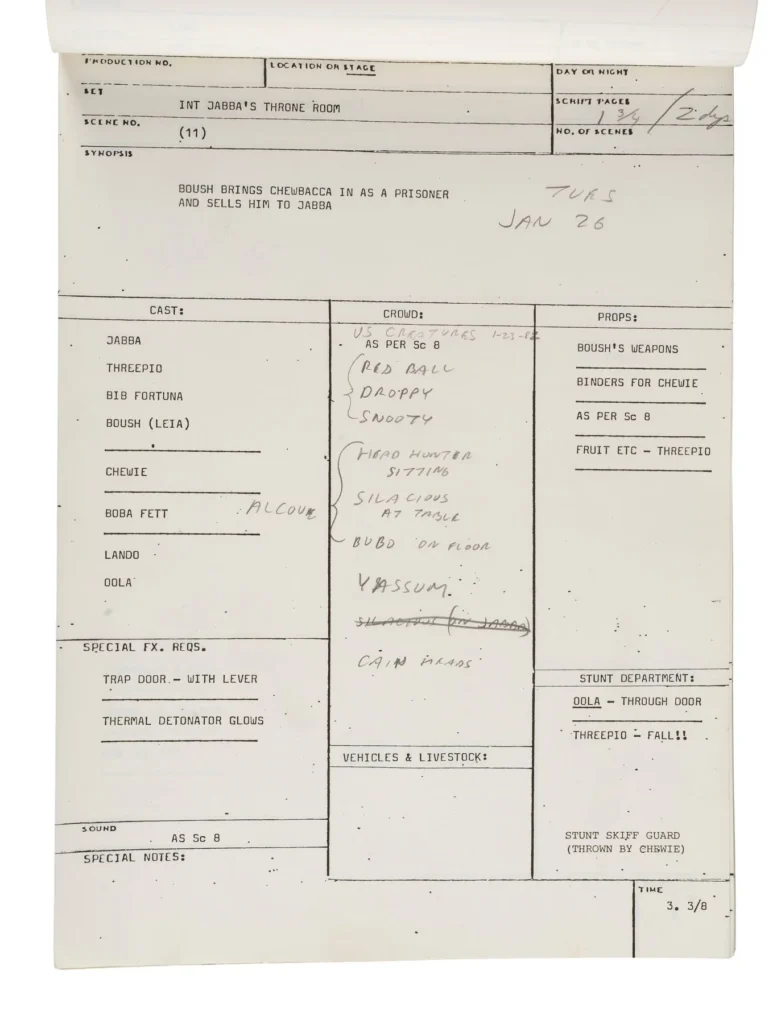 PRODUCTION NO.
LOCATION OR STAGE
DAY OR NIGHT
SET
INT JABBA'S THRONE ROOM
SCRIPT PAGES
1 3/4 / 2 dys
SCENE NO.
(11)
NO. OF SCENES
SYNOPSIS
BOUSH BRINGS CHEWBACCA IN AS A PRISONER
AND SELLS HIM TO JABBA
TURS
JAN 26
CAST:
JABBA
THREEPIO
BIB FORTUNA
BOUSH (LEIA)
CHEWIE
BOBA FETT
ALCOVE
LANDO
OOLA
CROWD:
US CREATURES 1-23-82
AS PER Sc 8
RED BALL
DROPPY
SNOOTY
HEAD HUNTER
SITTING
SILACIOUS
AT TABLE
BUBO ON FLOOR
YASSUM
SILACIOUS (ON JABBA)
CAIN HEADS
PROPS:
BOUSH'S WEAPONS
BINDERS FOR CHEWIE
AS PER Sc 8
FRUIT ETC - THREEPIO
SPECIAL FX. REQS.
TRAP DOOR - WITH LEVER
THERMAL DETONATOR GLOWS
VEHICLES & LIVESTOCK:
STUNT DEPARTMENT:
OOLA - THROUGH DOOR
THREEPIO - FALL!!
STUNT SKIFF GUARD
(THROWN BY CHEWIE)
SOUND
AS Sc 8
SPECIAL NOTES:
TIME
3. 3/8